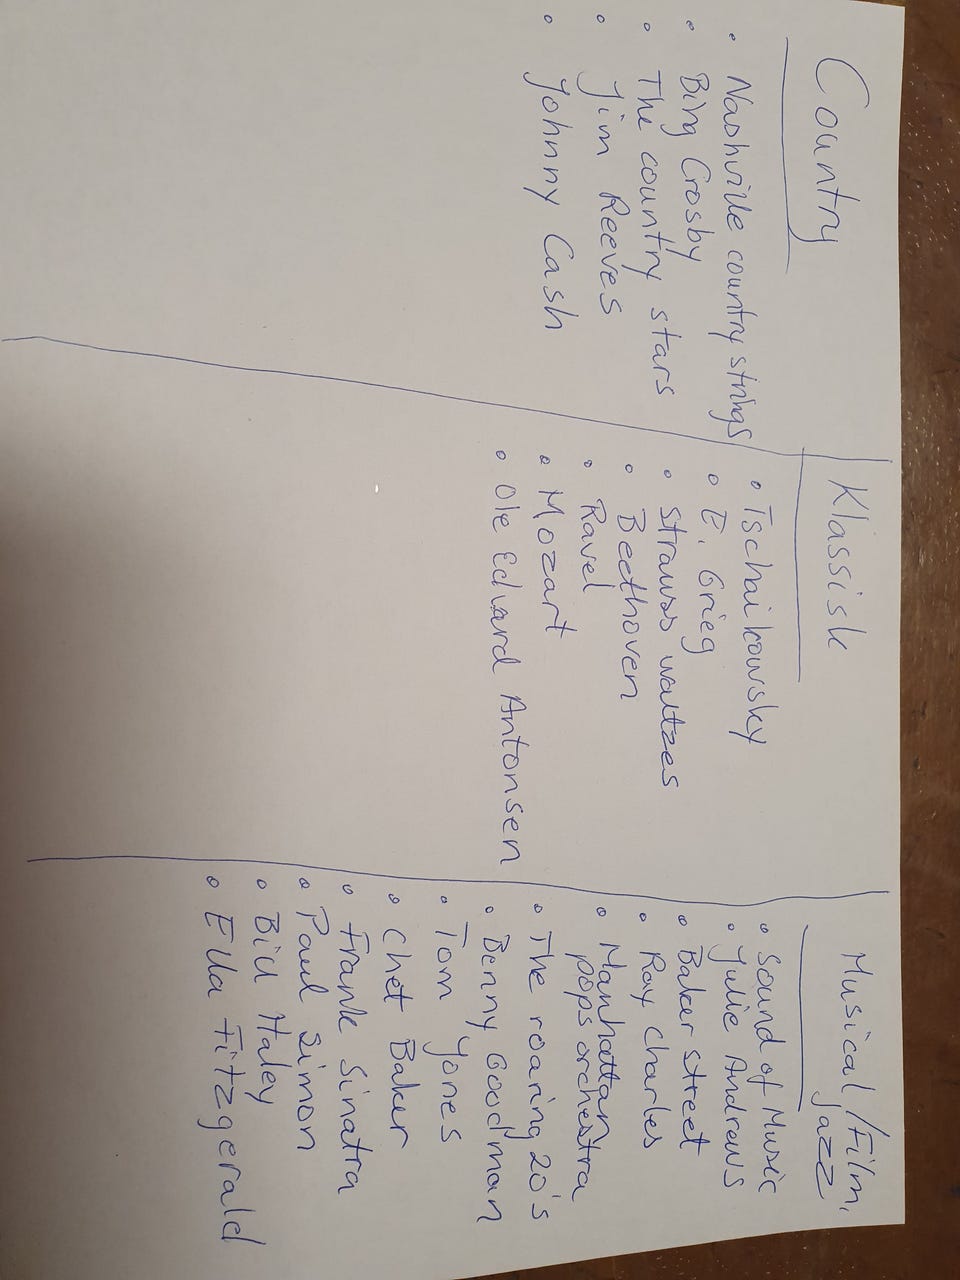 Country
Nashville country strings
Bing Crosby
The country stars
Jim Reeves
Johnny Cash
Klassisk
Tschaikowsky
E. Grieg
Strauss waltzes
Beethoven
Ravel
Mozart
Ole Edvard Antonsen
Musical/Film,
Jazz
Sound of Music
Julie Andrews
Baker street
Ray Charles
Manhattan
pops orchestra
The roaring 20's
Benny Goodman
Tom Jones
Chet Baker
Frank Sinatra
Paul Simon
Bill Haley
Ella Fitzgerald